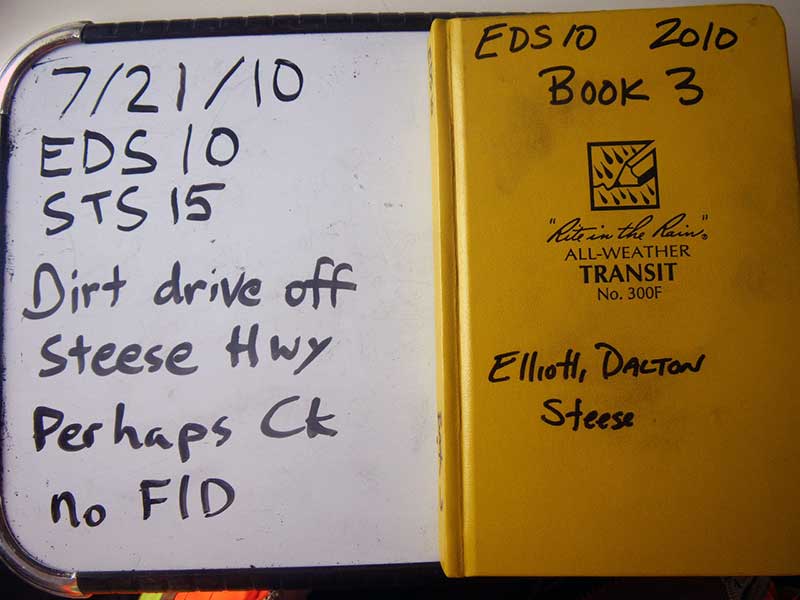 7/21/10
EDS 10
STS 15
Dirt drive off
Steese Hwy
Perhaps Ck
no FID
EDS 10 2010
Book 3
"Rite in the Rain"®
ALL-WEATHER
TRANSIT
No. 300F
Elliott, DALTON
Steese